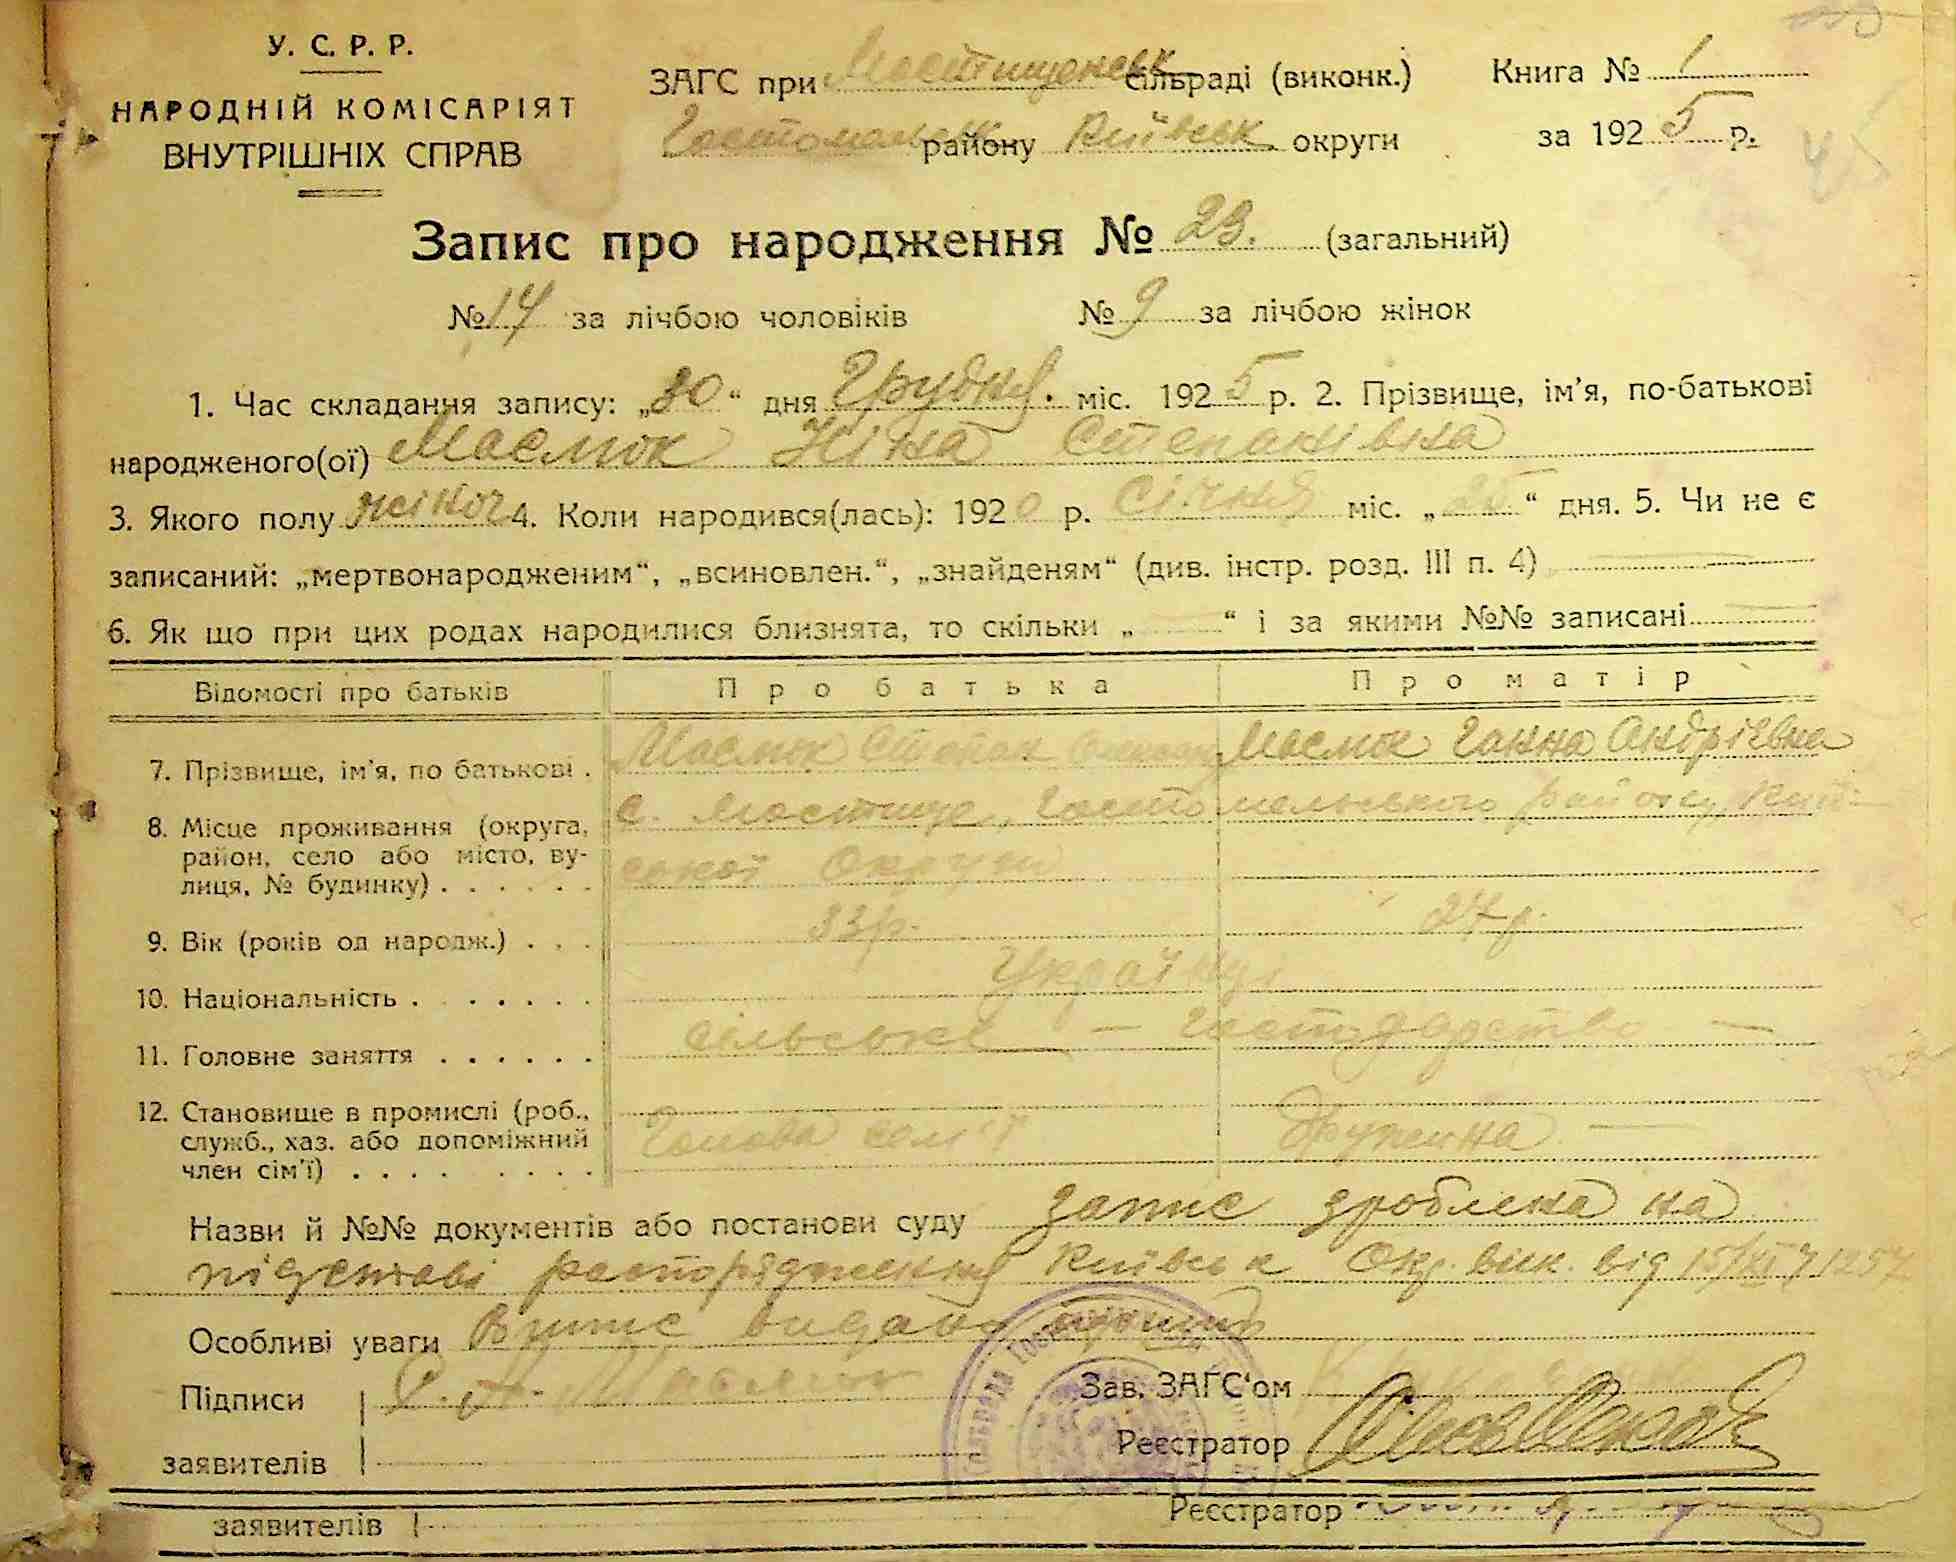 У. С. Р. Р.
НАРОДНІЙ КОМІСАРІЯТ
ВНУТРІШНІХ СПРАВ
ЗАГС при Мостищенськ сільраді (виконк.)
Гостомельськ району Київськ округи
Книга № 1
за 1925 р.
Запис про народження № 23. (загальний)
№ 14 за лічбою чоловіків № 9 за лічбою жінок
1. Час складання запису: „30“ дня Грудня. міс. 1925 р. 2. Прізвище, ім'я, по-батькові
народженого(ої) Маслюк Ніна Степанівна
3. Якого полу жіноч 4. Коли народився(лась): 1920 р. Січня міс. „25“ дня. 5. Чи не є
записаний: „мертвонародженим“, „всиновлен.“, „знайденям“ (див. інстр. розд. III п. 4)
6. Як що при цих родах народилися близнята, то скільки „ “ і за якими №№ записані
Відомості про батьків Про батька Про матір
7. Прізвище, ім'я, по батькові . Маслюк Степан Маслюк Ганна Андріївна
8. Місце проживання (округа, с. Мостище, Гостомельського району, Київ-
район, село або місто, ву-
лиця, № будинку) . . . . . . ської Округи
9. Вік (років од народж.) . . . 33р. 24р.
10. Національність . . . . . . . Українці
11. Головне заняття . . . . . . сільське — господарство —
12. Становище в промислі (роб.,
служб., хаз. або допоміжний Голова сем'ї Дружина —
член сім'ї) . . . . . . . .
Назви й №№ документів або постанови суду запис зроблена на
підставі распорядження Київськ Окр. вик. від 15/XII
Особливі уваги Витис видано
Підписи Маслюк
заявителів
Зав. ЗАГС'ом
Реєстратор
заявителів Реєстратор